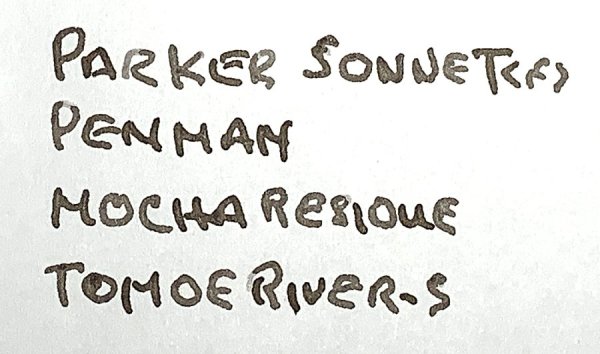 PARKER SONNET<F>
PENMAN
MOCHA RESIDUE
TOMOE RIVER-S